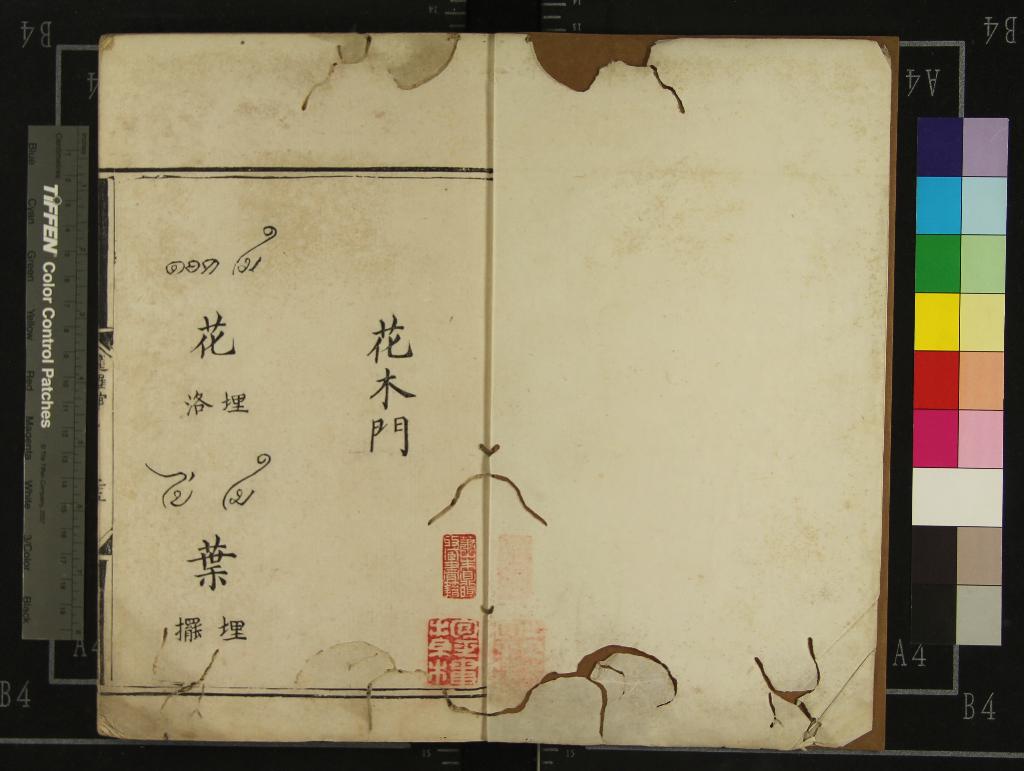 花木門
ดอก ไม
花
洛 埋
ใบ ไม
葉
擺 埋
TIFFEN Color Control Patches
Blue Cyan Green Yellow Red Magenta White 3/Color Black
B4
A4
B4
A4
A4
B4
A4
B4